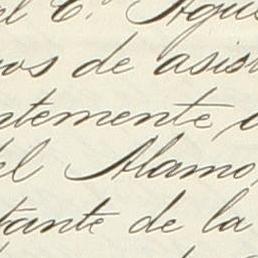 al C.º Agus
os de asis
ntemente,
del Alamo,
tante de la